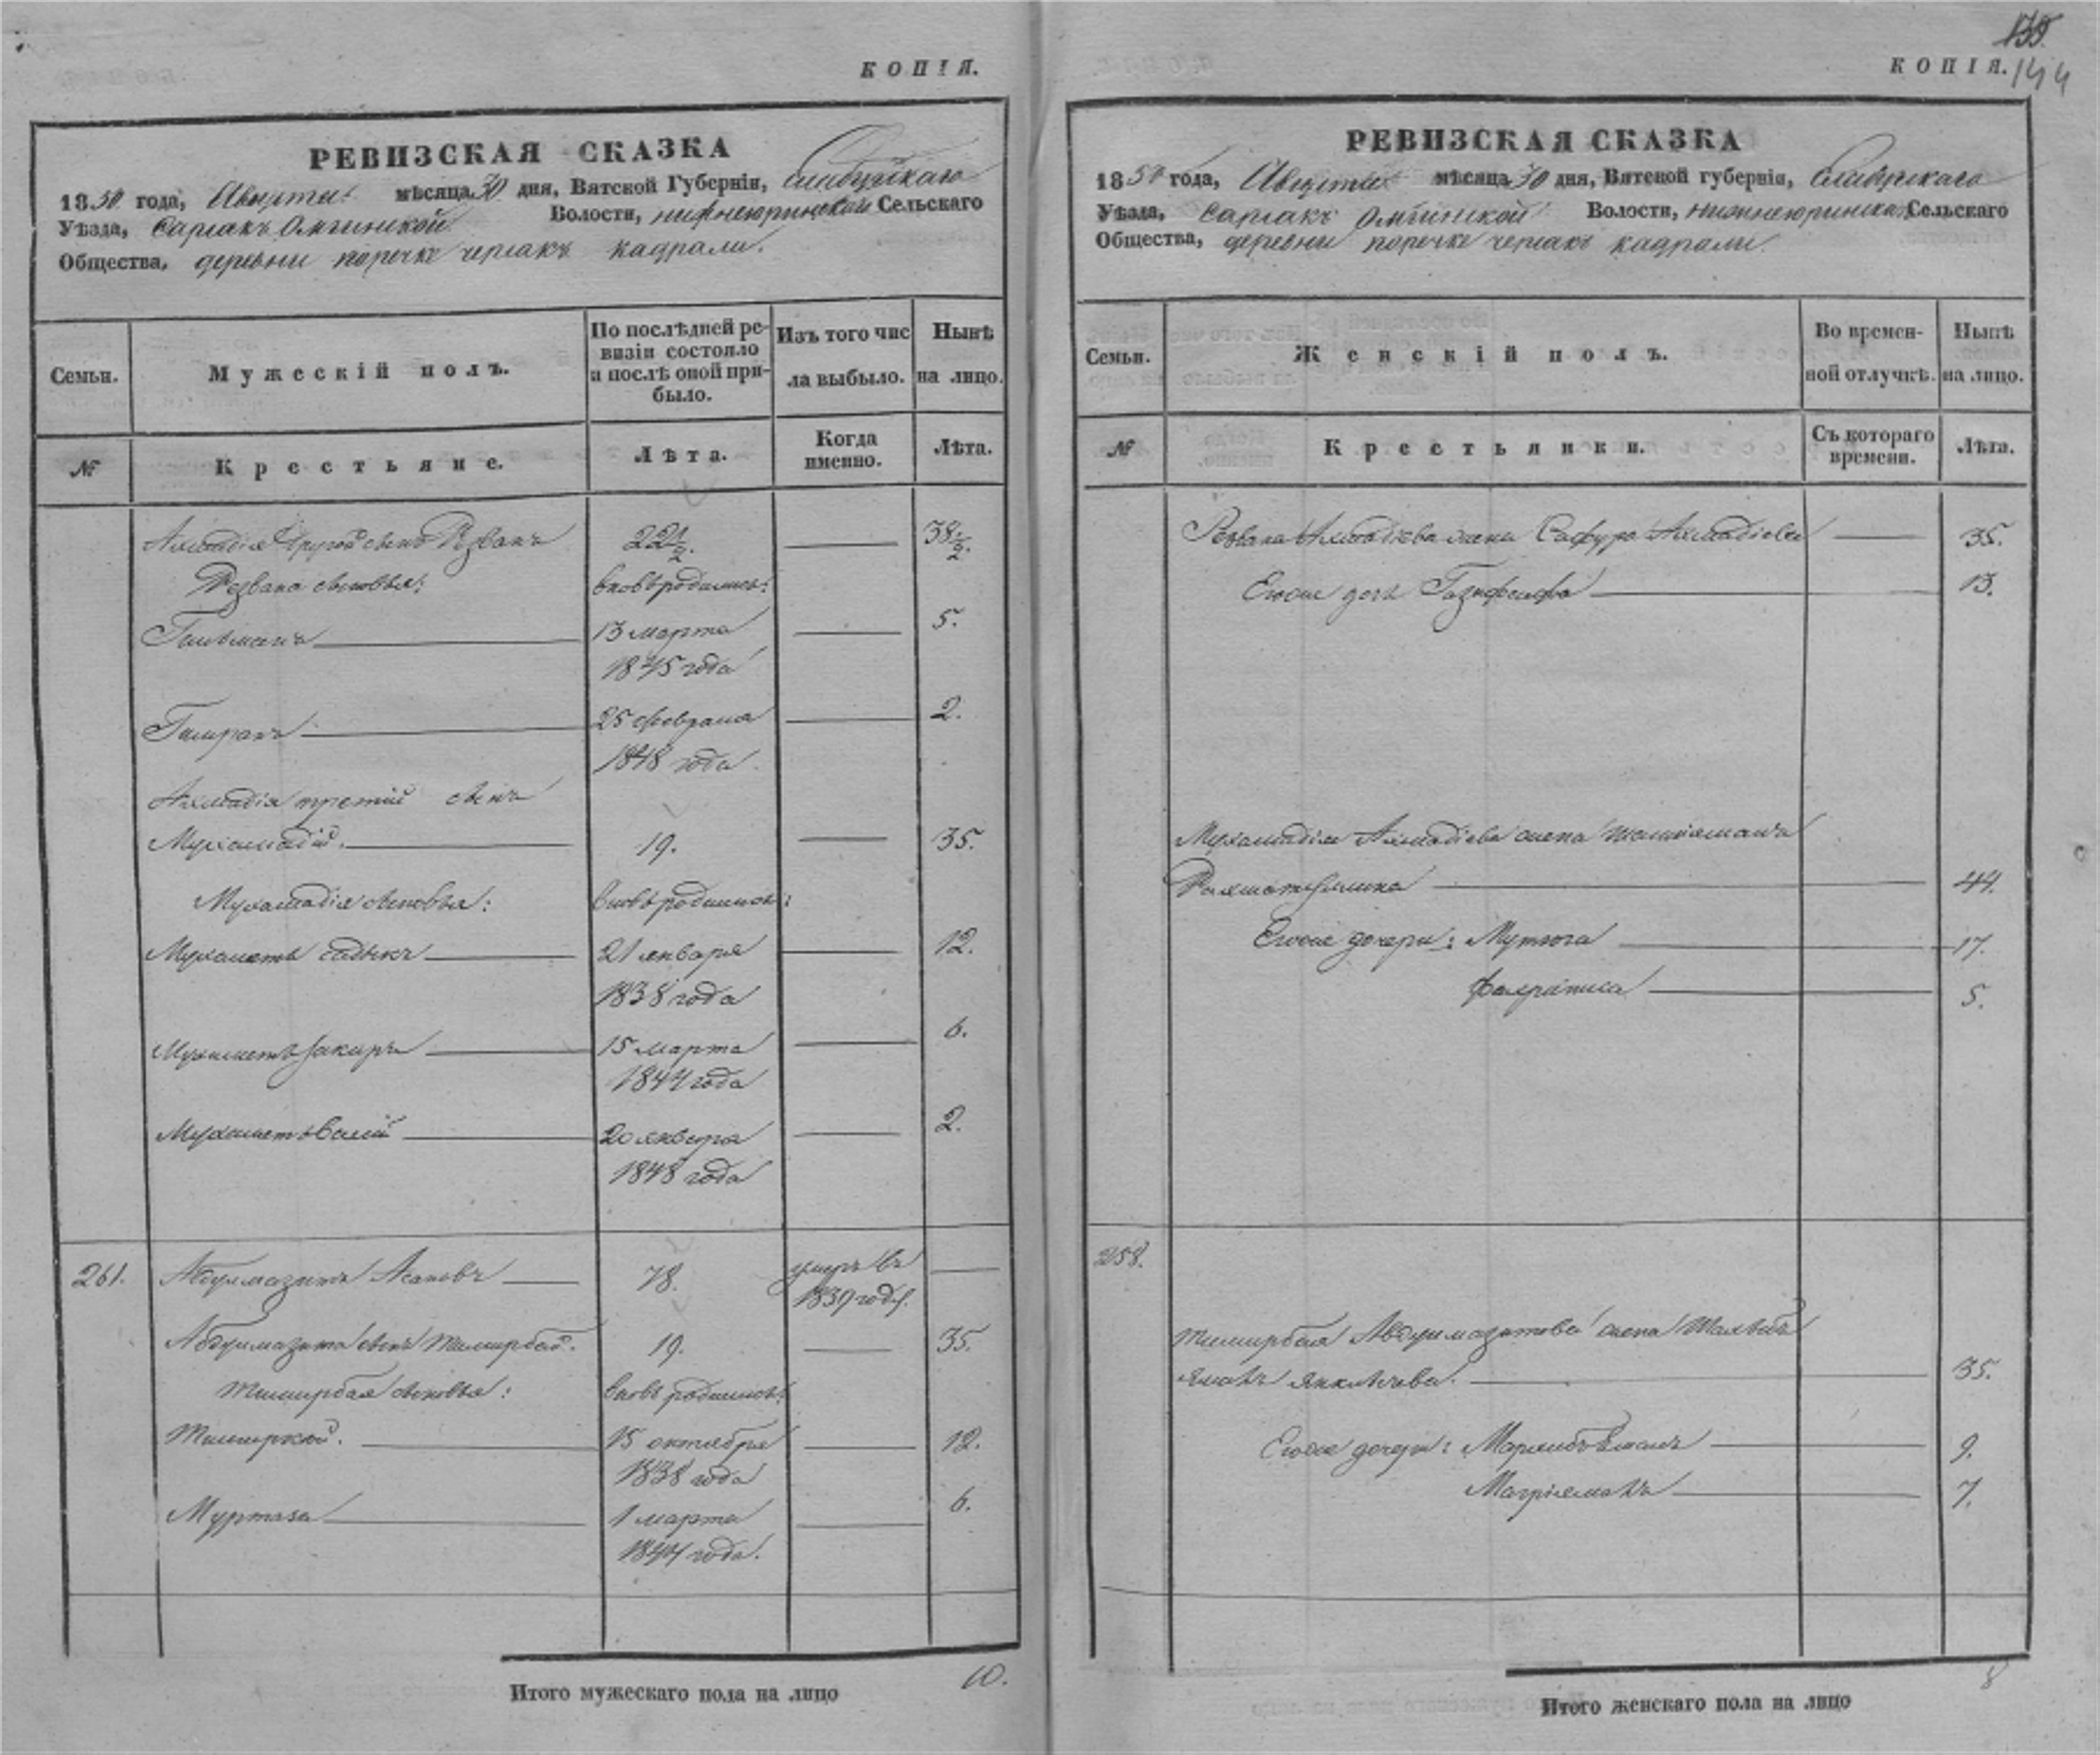 КОПІЯ.
РЕВИЗСКАЯ СКАЗКА
1850 года, Августа мѣсяца 30 дня, Вятской Губерніи, Елабужскаго
Уѣзда, Сарсакъ Омгинской Волости, нижнеюринскаго Сельскаго
Общества, деревни поречке черсакъ кадрали.
Семьи.
Мужескій полъ.
По послѣдней ре-
визіи состояло
и послѣ оной при-
было.
Изъ того чис
ла выбыло.
Нынѣ
на лицо.
№
Крестьяне.
Лѣта.
Когда
именно.
Лѣта.
Ахмадія другой сынъ Резванъ 22 1/2. 38 1/2.
Резвана сыновья: вновьродились:
13 марта 5.
1845 года
25 февраля 2.
1848 года
Ахмадія третій сынъ
Мухамадій. 19. 35.
Мухамадія сыновья: вновьродились:
Мухаметъ садыкъ 21 января 12.
1838 года
Мухаметъ закиръ 15 марта 6.
1844 года
Мухаметъ валій 20 января 2.
1848 года
261. Абдулмазитъ Асановъ 78. умеръ въ
1839 году.
Абдулмазита сынъ Тимирбай. 19. 35.
Тимирбая сыновья: вновь родились:
Тимиркай. 15 октября 12.
1838 года
Муртаза 1 марта 6.
1844 года.
Итого мужескаго пола на лицо 10.
135
КОПІЯ. 144
РЕВИЗСКАЯ СКАЗКА
1850 года, Августа мѣсяца 30 дня, Вятской губерніи, Елабужскаго
Уѣзда, Сарсакъ Омгинской Волости, нижнеюринскаго Сельскаго
Общества, деревни поречке черсакъ кадрали.
Семьи.
Женскій полъ.
Во времен-
ной отлучкѣ.
Нынѣ
на лицо.
№
Крестьянки.
Съ котораго
времени.
Лѣта.
Резвана Ахмадіева жена Сафура Ахмадіева 35.
Егоже дочь 13.
Мухамадія Ахмадіева жена
44.
Егоже дочери: 17.
5.
258.
Тимирбая Абдулмазитова жена
35.
Егоже дочери: 9.
7.
Итого женскаго пола на лицо 8